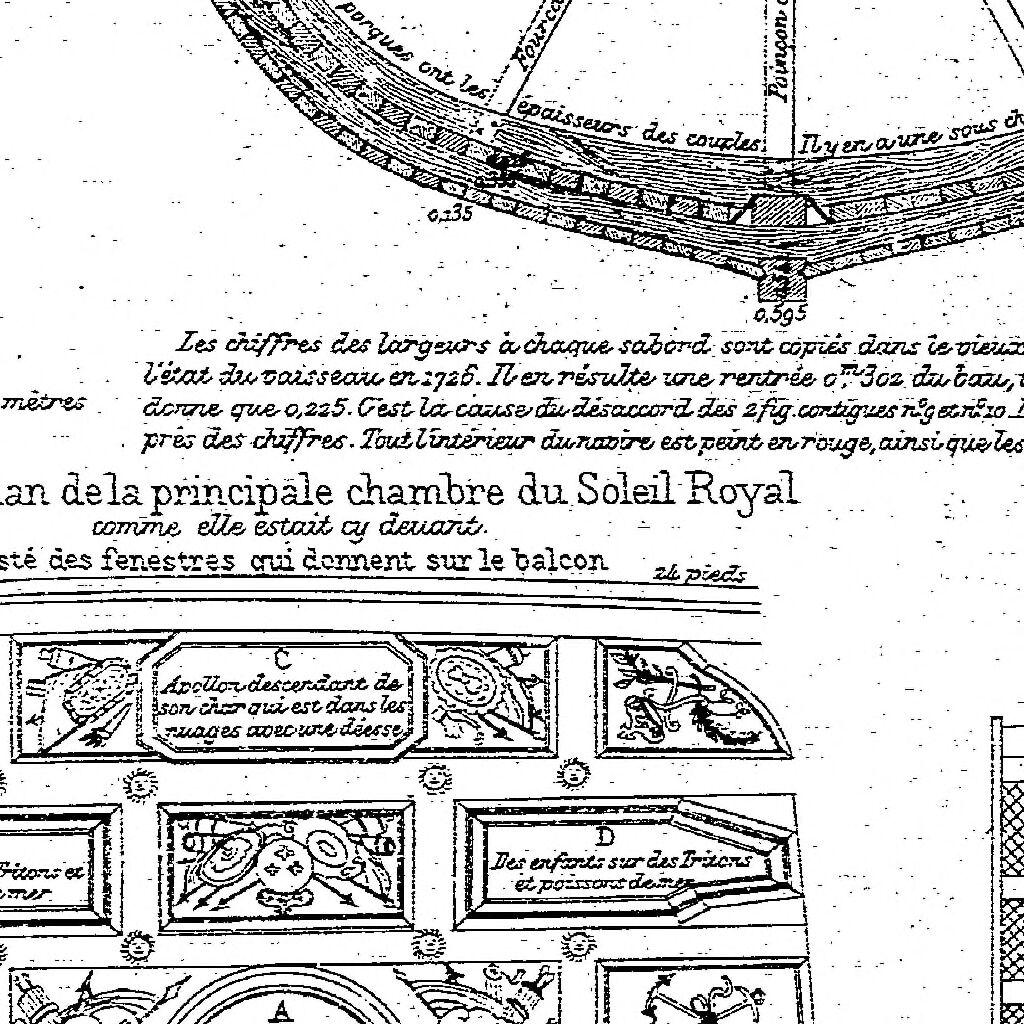 porques ont les
Fourca
épaisseurs des couples
Poinçon
Il y en a une sous ch
0,135
0,595
Les chiffres des largeurs à chaque sabord sont copiés dans le vieux
l'état du vaisseau en 1726. Il en résulte une rentrée 0m302 du bau,
mètres
donne que 0,225. C'est la cause du désaccord des 2 fig. contigues n° 9 et n° 10
près des chiffres. Tout l'intérieur du navire est peint en rouge, ainsi que les
lan de la principale chambre du Soleil Royal
comme elle estait cy devant.
sté des fenestres qui donnent sur le balcon
24 pieds
C
Apollon descendant de
son char qui est dans les
nuages avec une déesse
D
Des enfants sur des Tritons
et poissons de mer
Tritons et
mer
A